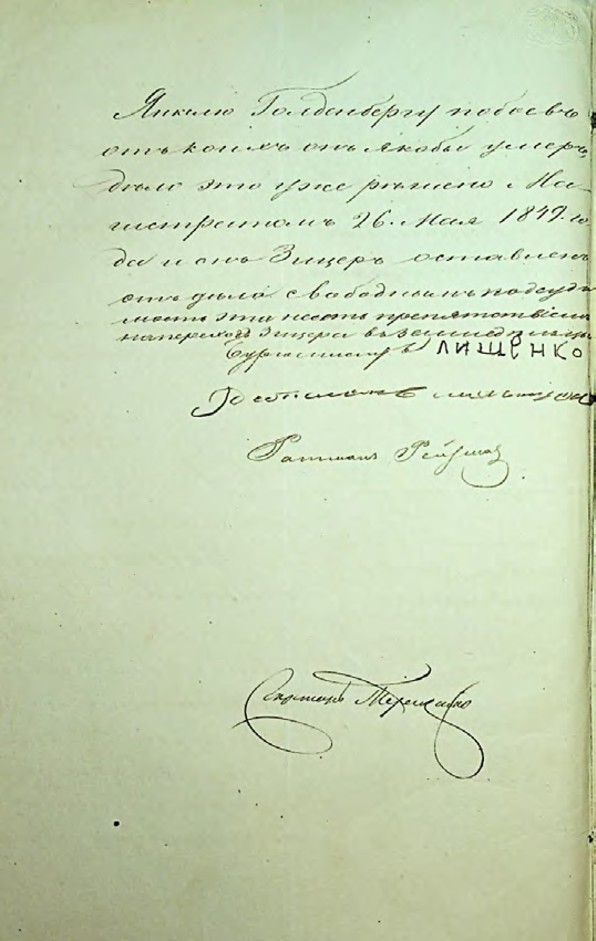 Янкелю Голденбергу побоевъ
отъ коихъ онъ якобы умеръ,
дѣло это уже рѣшено Ма-
гистратомъ 26. Мая 1849. го-
да и онъ Зицеръ оставленъ
отъ дѣла свободнымъ подсуди-
мость эта несть препятствіемъ
на переходъ Зицера въ земледѣльцы
Бургомистръ ЛИЩЕНКО
Ратманъ
Ратманъ
Секретарь Терещенко